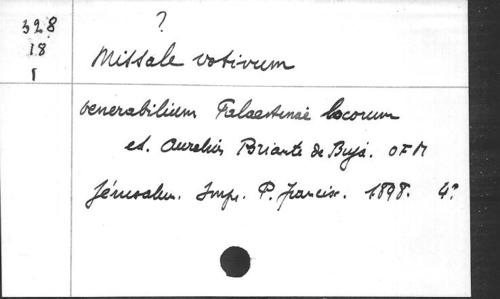 ?
328
18
1
Missale votivum
venerabilium Palaestinae locorum
ed. Aurelius Briante de Buja. OFM
Jérusalem. Impr. P. Francisc. 1898. 4?